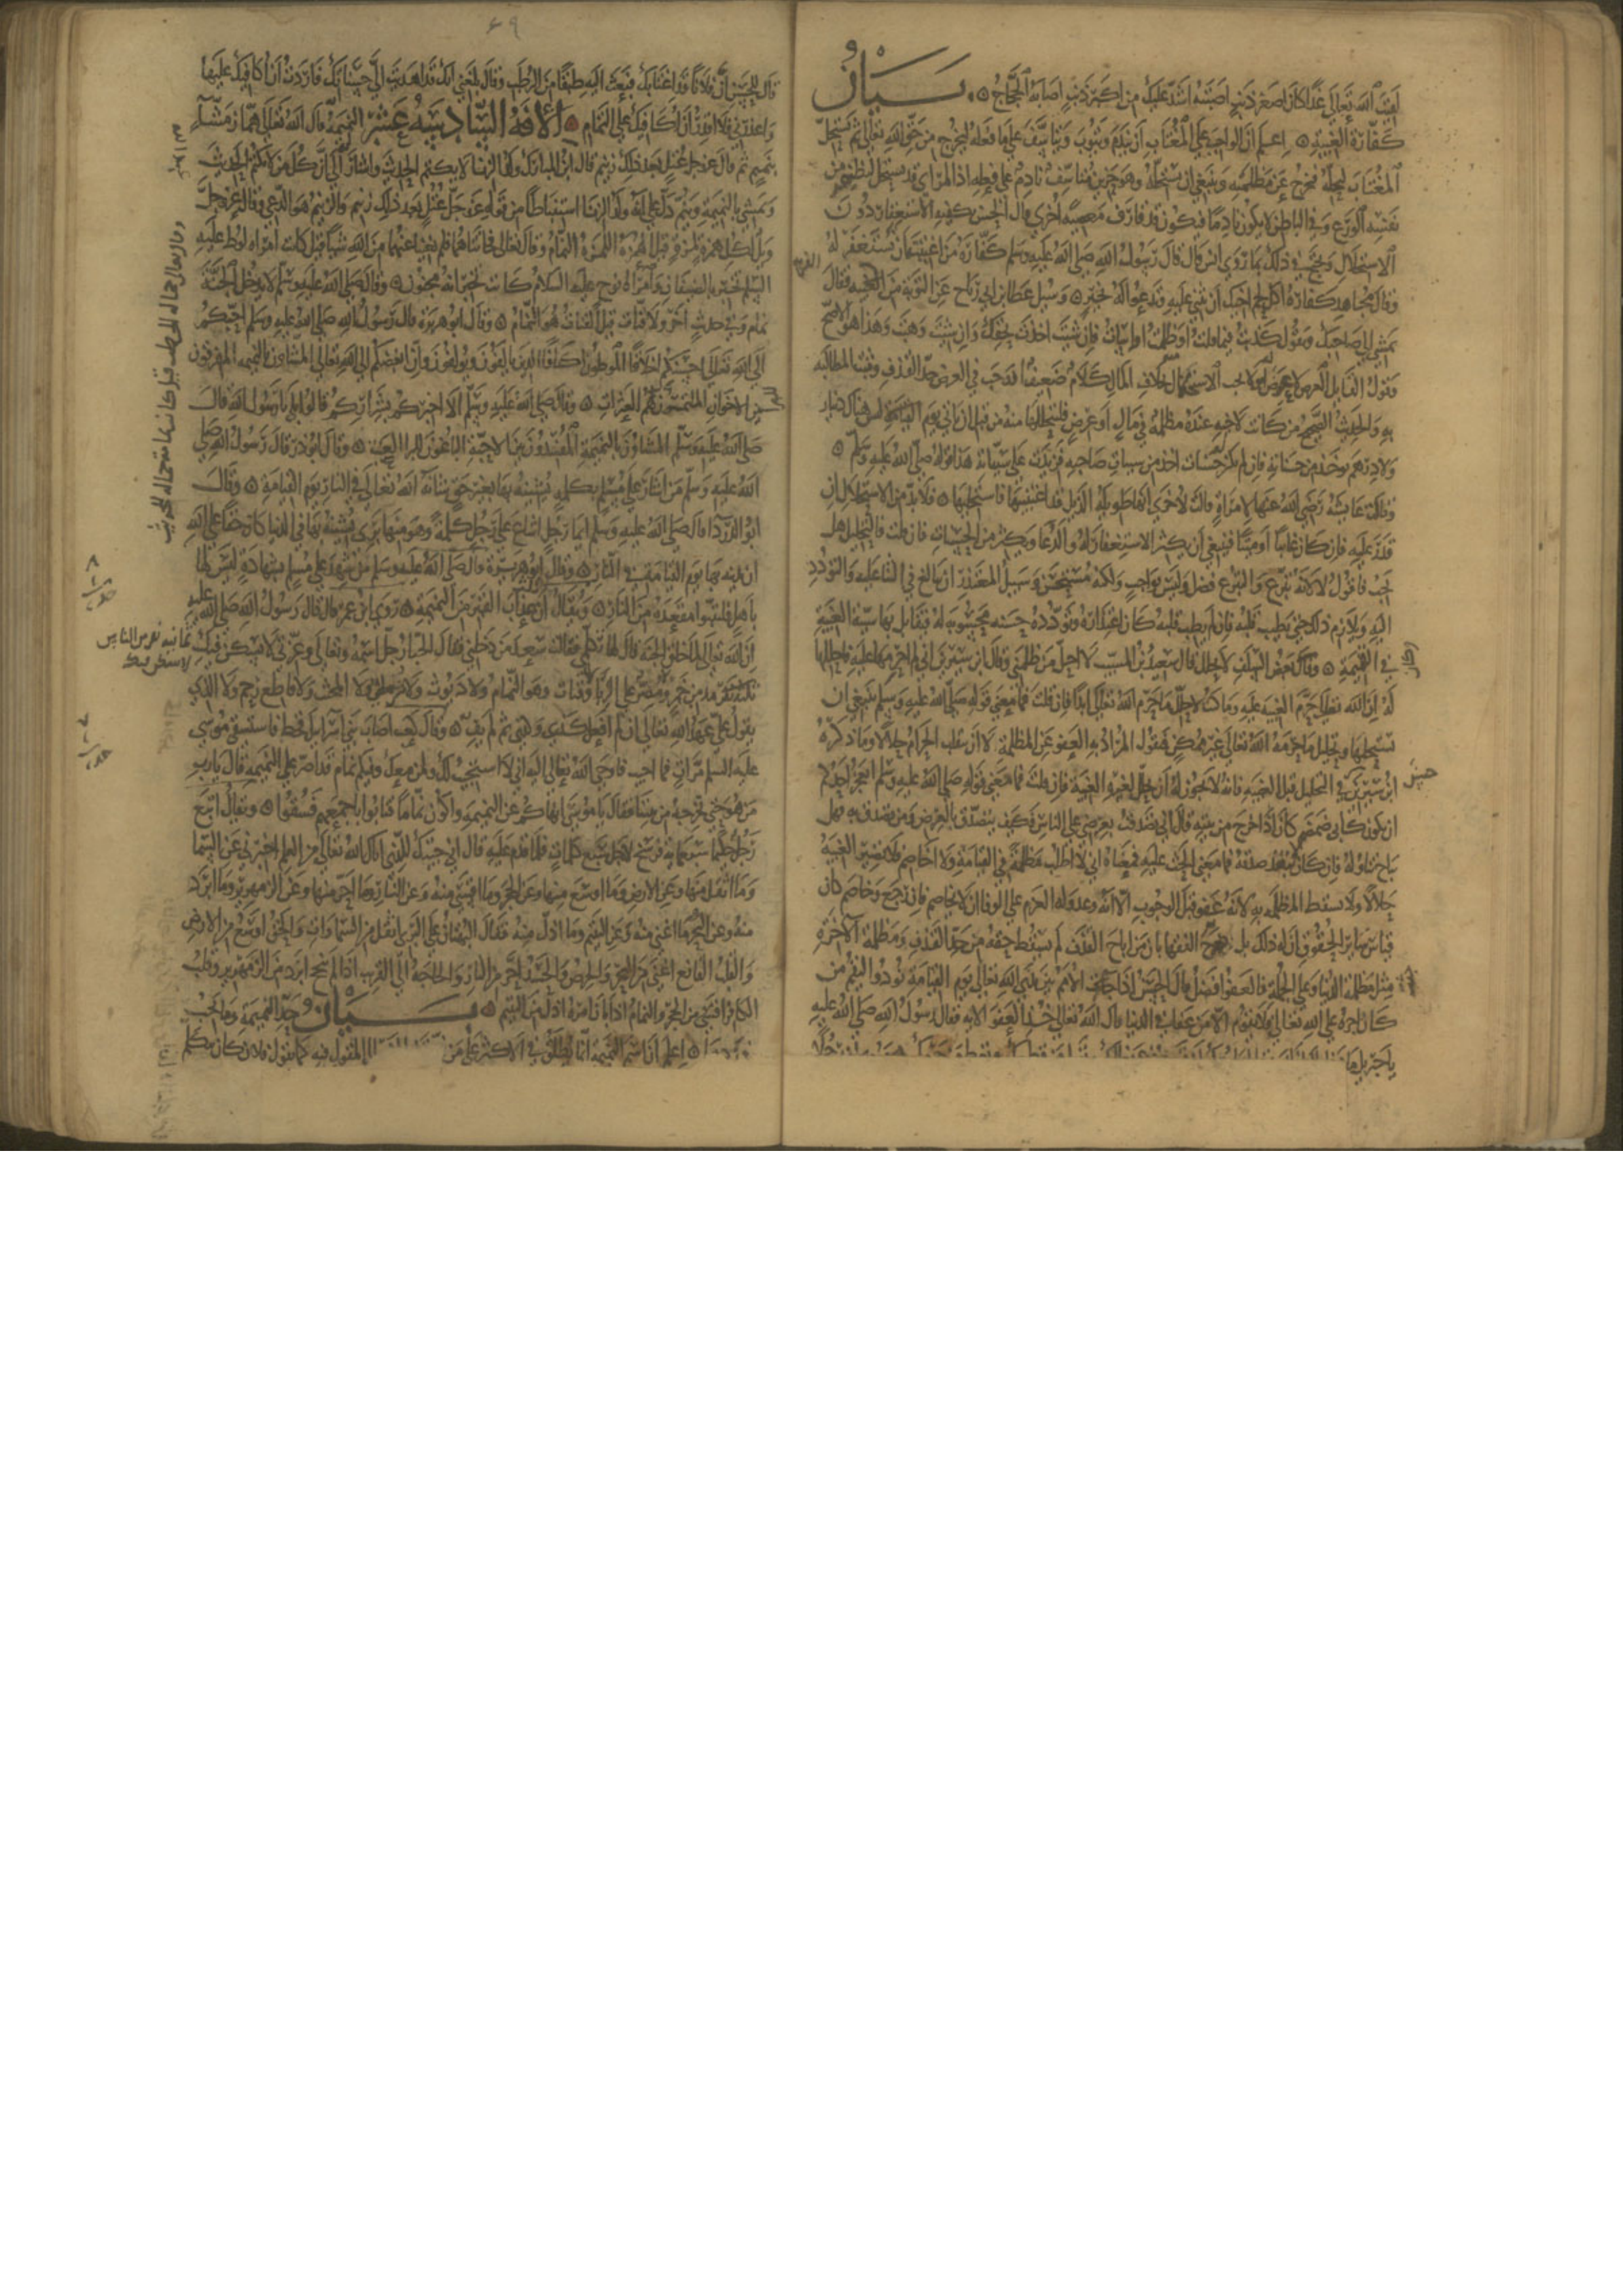 لقيت الله تعالى غدا كان اصغر ذنب اصبته اشد عليك من اكبر ذنب اصابه الحجاج ۞ بيان
كفارة الغيبة ۞ اعلم ان الواجب على المغتاب ان يندم ويتوب ويتاسف على ما فعله ليخرج من حق الله تعالى ثم يستحل
المغتاب ليحله فيخرج عن مظلمته وينبغي ان يستحله وهو حزين متاسف نادم على فعله اذ المراي قد يستحل ليظهر من
نفسه الورع وفي الباطن لا يكون نادما فيكون قد قارف معصية اخرى وقال الحسن يكفيه الاستغفار دون
الاستحلال ويحتج في ذلك بما روى انس قال قال رسول الله صلى الله عليه وسلم كفارة من اغتبته ان تستغفر له
وقال مجاهد كفارة اكل لحم اخيك ان تثني عليه وتدعو له بخير ۞ وسئل عطا بن ابي رباح عن التوبة من الغيبة فقال
تمشي الى صاحبك وتقول كذبت فيما قلت وظلمت واسات فان شئت اخذت بحقك وان شئت وهبت وهذا هو الاصح
وقول القايل العرض لا عوض له فلا يجب الاستحلال بخلاف المال كلام ضعيف اذ قد وجب في العرض حد القذف وتثبت المطالبة
به وفي الحديث الصحيح من كانت لاخيه عنده مظلمة في مال او عرض فليتحللها منه من قبل ان ياتي يوم القيامة ليس هناك دينار
ولا درهم يوخذ من حسناته فان لم يكن حسنات اخذ من سيات صاحبه فزيدت على سياته هذا قوله صلى الله عليه وسلم ۞
وقالت عايشة رضي الله عنها لامراة قالت لاخرى انها طويلة الذيل قد اغتبتيها فاستحليها ۞ فلا بد من الاستحلال ان
قدر عليه فان كان غايبا او ميتا فينبغي ان يكثر الاستغفار له والدعا ويكثر من الحسنات فان قلت فالتحليل هل
يجب فاقول لا لانه تبرع والتبرع فضل وليس بواجب ولكنه مستحسن وسبيل المعتذر ان يبالغ في الثنا عليه والتودد
اليه ويلازم ذلك حتى يطيب قلبه فان لم يطب قلبه كان اعتذاره وتودده حسنة محسوبة له يقابل بها سية الغيبة
في القيمة ۞ وقال بعض السلف لا احلل قال سعيد بن المسيب لا احلل من ظلمني وقال ابن سيرين اني لم احرمها عليه فاحللها
له ان الله تعالى حرم الغيبة عليه وما كنت لاحلل ما حرم الله تعالى ابدا فان قلت فما معنى قوله صلى الله عليه وسلم ينبغي ان
يستحلها وتحليل ما حرمه الله تعالى غير ممكن فنقول المراد به العفو عن المظلمة لا ان ينقلب الحرام حلالا وما ذكره
ابن سيرين في التحليل قبل الغيبة فانه لا يجوز له ان يحلل لغيره الغيبة فان قلت فما معنى قوله صلى الله عليه وسلم ايعجز احدكم
ان يكون كابي ضمضم كان اذا خرج من بيته قال اني تصدقت بعرضي على الناس فكيف يتصدق بالعرض ومن تصدق به فهل
يباح تناوله فان كان لا تنفذ صدقته فما معنى الحث عليه فمعناه اني لا اطلب مظلمة في القيامة ولا اخاصم فلا تصير الغيبة
حلالا ولا تسقط المظلمة به لانه عفو قبل الوجوب الا انه وعد وله العزم على الوفا ان لا يخاصم فان رجع وخاصم كان
قياس ساير الحقوق ان له ذلك بل صرح الفقها بان من اباح القذف لم يسقط حقه من حد القذف ومظلمة الاخرة
مثل مظلمة الدنيا وعلى الجملة فالعفو افضل قال الحسن اذا جثت الامم بين يدي الله تعالى يوم القيامة نودوا ليقم من
كان اجره على الله تعالى فلا يقوم الا من عفا في الدنيا وقال الله تعالى خذ العفو الاية فقال رسول الله صلى الله عليه
يا جبريل ما
قال للحسن ان فلانا قد اغتابك فبعث اليه طبقا من الرطب وقال بلغني انك قد اهديت الي حسناتك فاردت ان اكافيك عليها
واعذرني فلا اقدر ان اكافيك على التمام ۞ الافة السادسة عشر النميمة قال الله تعالى هماز مشاء
بنميم ثم قال عز وجل عتل بعد ذلك زنيم قال ابن المبارك ولد الزنا لا يكتم الحديث واشار الى ان كل من لا يكتم الحديث
ومشى بالنميمة دل على انه ولد الزنا استنباطا من قوله عز وجل عتل بعد ذلك زنيم والزنيم هو الدعي وقال عز وجل
ويل لكل همزة لمزة قيل الهمزة النمام وقال تعالى فخانتاهما فلم يغنيا عنهما من الله شيا قيل كانت امراة لوط عليه
السلم تخبر بالضيفان وامراة نوح عليه السلام كانت تخبر انه مجنون ۞ وقال صلى الله عليه وسلم لا يدخل الجنة
نمام وفي حديث اخر ولا قتات قيل القتات هو النمام ۞ وقال ابو هريرة قال رسول الله صلى الله عليه وسلم احبكم
الى الله تعالى احسنكم اخلاقا الموطون اكنافا الذين يالفون ويولفون وان ابغضكم الى الله تعالى المشاون بالنميمة المفرقون
بين الاخوان الملتمسون لهم العثرات ۞ وقال صلى الله عليه وسلم الا اخبركم بشراركم قالوا بلى يا رسول الله قال
صلى الله عليه وسلم المشاون بالنميمة المفسدون بين الاحبة الباغون للبرا العيب ۞ وقال ابو ذر قال رسول الله صلى
الله عليه وسلم من اشار على مسلم بكلمة ليشينه بها بغير حق شانه الله تعالى في النار يوم القيامة ۞ وقال
ابو الدردا قال صلى الله عليه وسلم ايما رجل اشاع على رجل كلمة وهو منها بري ليشينه بها في الدنيا كان حقا على الله
ان يذيبه بها يوم القيامة في النار ۞ وقال ابو هريرة قال صلى الله عليه وسلم من شهد على مسلم شهادة ليس لها
باهل فليتبوا مقعده من النار ۞ ويقال ان عذاب القبر من النميمة ۞ روى ابن عمر قال قال رسول الله صلى الله عليه
ان الله تعالى لما خلق الجنة قال لها تكلمي فقالت سعد من دخلني فقال الجبار جل اسمه وتعالى وعزتي لا يسكن فيك
مدمن خمر ومصر على الزنا وقتات وهو النمام ولا ديوث ولا شرطي ولا المخنث ولا قاطع رحم ولا الذي
يقول علي عهد الله تعالى ان لم افعل كذى وكذى ثم لم يف ۞ وقال كعب اصاب بني اسرايل قحط فاستسقى موسى
عليه السلم مرات فما اجيب فاوحى الله تعالى اليه اني لا استجيب لك ولمن معك وفيكم نمام قد اصر على النميمة قال يا رب
من هو حتى نخرجه من بيننا فقال يا موسى انهاكم عن النميمة واكون نماما فتابوا باجمعهم فسقوا ۞ ويقال اتبع
رجل حكيما سبعماية فرسخ لاجل سبع كلمات فلما قدم عليه قال اني جيتك للذي اتاك الله تعالى من العلم اخبرني عن السما
وما اثقل منها وعن الارض وما اوسع منها وعن الحجر وما اقسى منه وعن النار وما احر منها وعن الزمهرير وما ابرد
منه وعن البحر وما اغنى منه وعن اليتيم وما اذل منه فقال البهتان على البري اثقل من السماوات والحق اوسع من الارض
والقلب القانع اغنى من البحر والحرص والحسد احر من النار والحاجة الى القريب اذا لم تنجح ابرد من الزمهرير وقلب
الكافر اقسى من الحجر والنمام اذا بان امره اذل من اليتيم ۞ بيان حد النميمة وما يجب
۞ اعلم ان اسم النميمة انما يطلق في الاكثر على من المقول فيه كما يقول فلان كان يتكلم